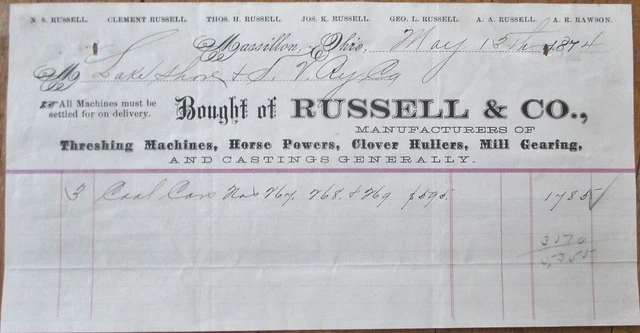 N. S. RUSSELL. CLEMENT RUSSELL. THOS. H. RUSSELL. JOS. K. RUSSELL. GEO. L. RUSSELL. A. A. RUSSELL. A. R. RAWSON.
Massillon, Ohio, May 13th 1874
M Lake Shore & Ry Co
All Machines must be
settled for on delivery.
Bought of RUSSELL & CO.,
MANUFACTURERS OF
Threshing Machines, Horse Powers, Clover Hullers, Mill Gearing,
AND CASTINGS GENERALLY.
3 Coal Cars Nos 767. 768. & 769 $595. 1785
3570